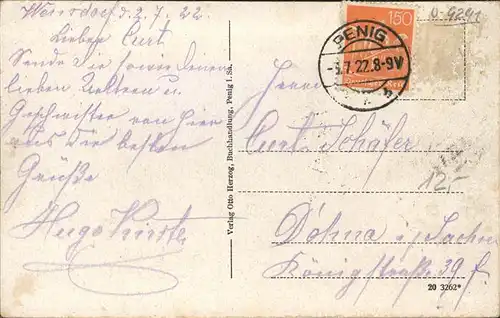 d. 2. 7. 22.
Lieber Curt
Sende Dir sowie deinen
lieben Aeltern u.
Geschwister von hier
aus die besten
Grüße
Hugo
Verlag Otto Herzog, Buchhandlung, Penig i. Sa.
150
PENIG
-3.7.22.8-9V
Herrn
Curt Schäfer
12,-
Döhna i/Sachsen
Königstraße 39 f.
20 3262*